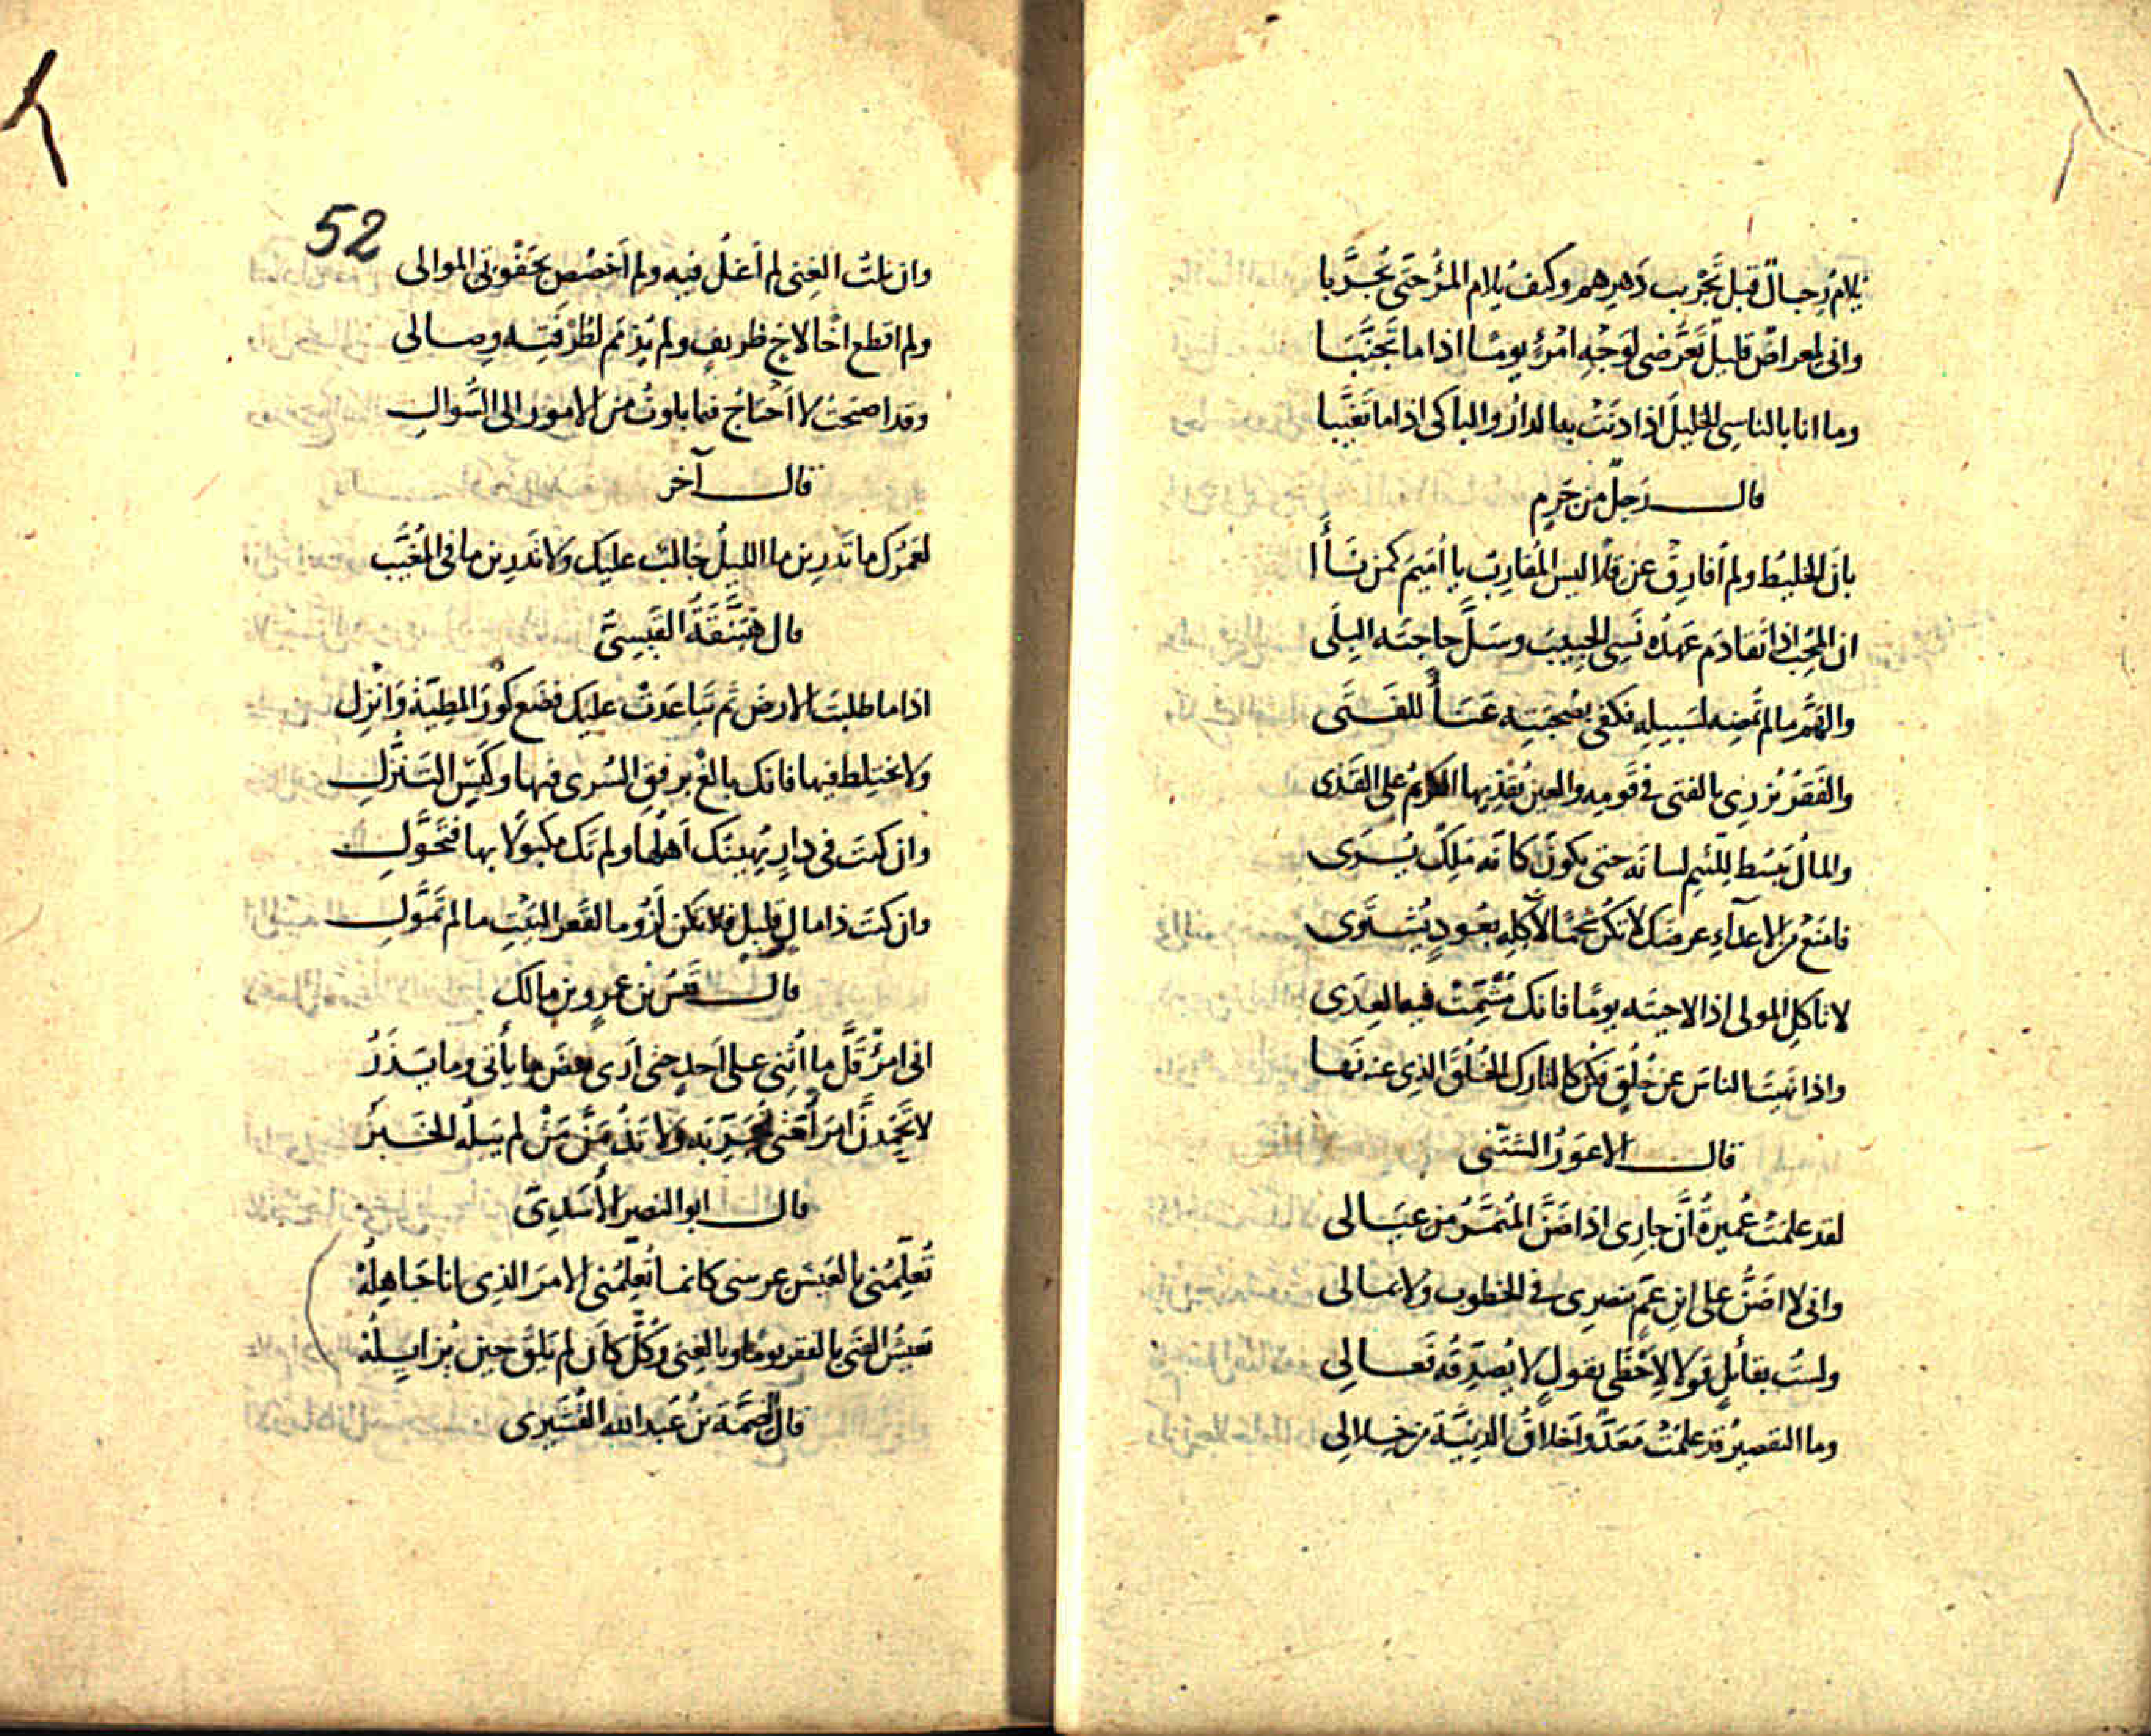 يُلامُ رِجالٌ قبلَ تَجْرِيب دَهرِهم وكيفَ يُلام المرْءُ حَتَّى يُجرَّبا
وانى لمعراضٌ قليلٌ تَعَرُّضى لوَجْهِ امرئٍ يومًا اذا ما تَجنَّبَا
وما انا بالناسِى الخليلَ اذا دنَتْ به الدارُ والباكى اذا ما تَغَيَّبا
قالــــ رَجلٌ من جَرمٍ
بانَ الخليطُ ولم أفارِقْ عن قلًا ليس المُقارِبُ يا أُمَيمَ كمن نَأَا
ان المحِبَّ اذا تَقادَم عَهدُه نَسِى الحبيبَ وسَلَّ حاجتَه البِلَى
والهَمُّ ما لم تُمضِه لسَبيلِه تكفى بصُحبَتِه عَنَأً للفَتَى
والفَقرُ يُزرِى بالفتى فى قَومِه والعين يُغضِيها الكريمُ على القَذى
والمالُ يَبْسُط للّئيمِ لسانَه حتى يكونَ كانّه مَلِكٌ يُــرَى
فامنَعْ من الاعدآءِ عرضَك لا تكُن لحمًا لآكلِه بعُودٍ يُشتَوى
لا تأكلِ المولى اذا لاحيتَه يومًا فانك مُشْمِتٌ فيه العِدَى
واذا نهيتَ الناسَ عن خُلُقٍ فكن كالتارك الخُلُقَ الذى عنه نَها
قالــــ الاعوَرُ الشَّنّى
لقد علمَتْ عُميرةُ أنّ جارِى اذا ضَنَّ المُثمِّرُ من عيَالى
وانى لا اضَنُّ على ابنِ عَمّ بنصرِى فى الخطوب ولا بمالى
ولستُ بقائلٍ قولا لأَحْظَى بقولٍ لا يُصدِّقُه فَعــالِى
وما التقصيرُ قد علمَتْ مَعَدٌّ وأخلاقُ الدنيّة من خِلالِى
52
وان نلتُ الغِنى لم أغلُ فيه ولم أخصُص بجَفْوتى الموالى
ولم اقطع اخًا لاخٍ ظريفٍ ولم يُذمَم لطُرْفَتِه وِصالى
وقد اصبحتُ لا احتَاجُ فيما بلوتُ من الامور الى السُّوالِ
قالــــ آخر
لعَمرُك ما تَدرِين ما الليلُ جالبٌ عليك ولا تَدرِين ما فى المُغيَّب
قال القَيسِىّ
اذا ما طلبتَ الارضَ ثم تَباعَدَتْ عليك فضَع كُورَ المطيّة وَانْزِل
ولا تختلِط فيها فانك بالغٌ برفقِ السُرى فيها وكَيِّسِ التَنزُّلِ
وان كنتَ فى دارٍ يُهينُك أهلُها ولم تَك مكبولًا بها فتَحَوَّلِ
وان كنتَ ذا مالٍ قليلٍ فلا تكن لَزُومًا لقَعر البيتِ ما لم تَمَوَّلِ
قالــــ بن عمرو بن مالك
انى امرُؤٌ قَلَّ ما أُثنِى على أحدٍ حتى أرى بعضَ ما يأتى وما يَــذَرُ
لا تَحمَدنَّ امرَأً حتى تُجَرِّبَه ولا تذُمَّنَّ مَنْ لم يَبلُه الخَــبَرُ
قالــــ ابو النصير الأسَدِىّ
تُعلّمُنى بالعَيش عرسى كانما تُعلِّمُنى الامرَ الذِى انا جَاهِلُهْ
تَعيشُ الفَتى بالفقر يومًا وبالغِنى وكُلٌّ كأن لم يَلقَ حين يُزايِلُهْ
قال الصِّمَّة بن عَبد الله القُشَيرى